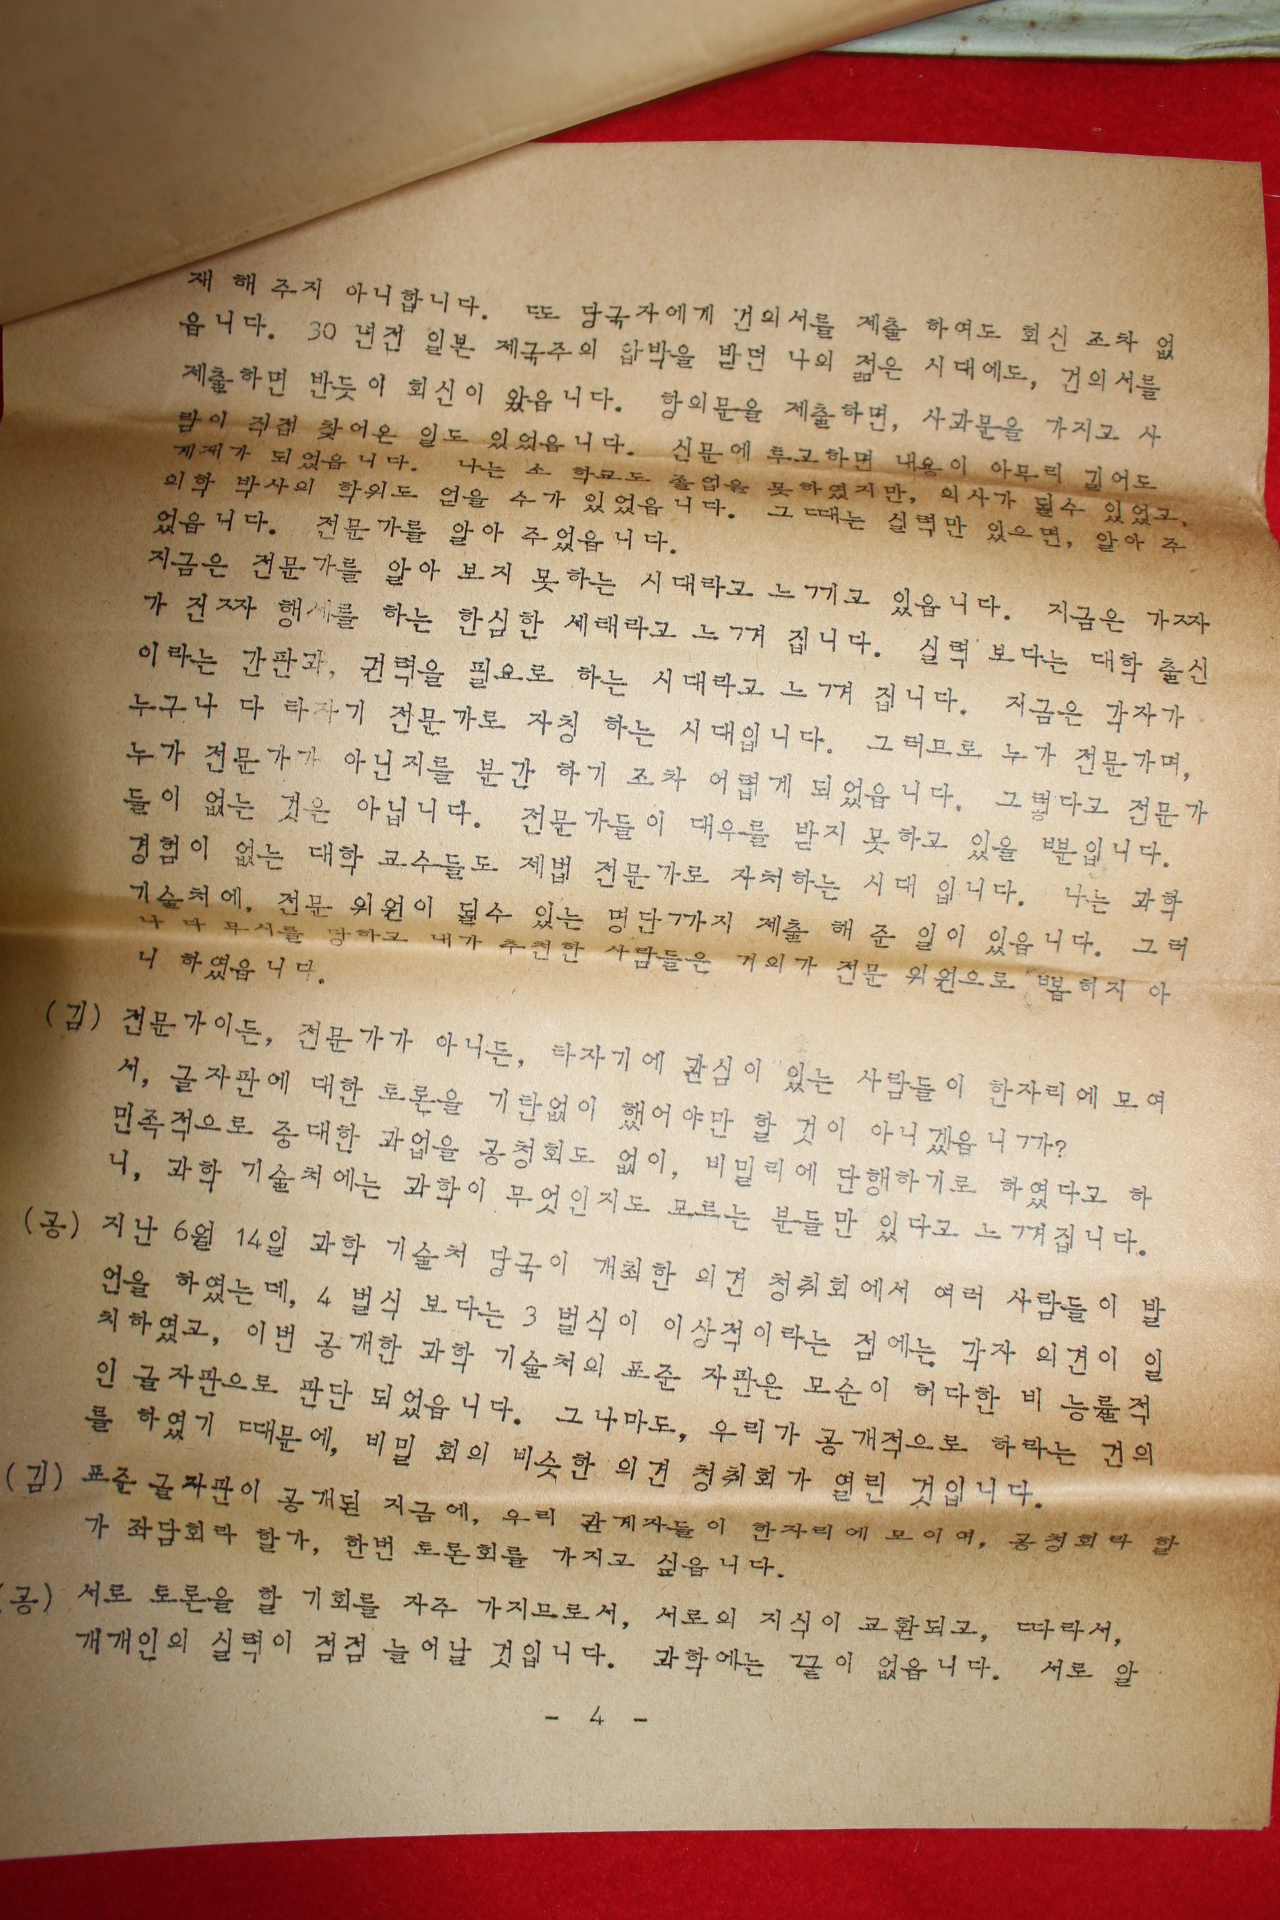 재 해 주지 아니합니다. 또 당국자에게 건의서를 제출 하여도 회신 조차 없
읍니다. 30 년전 일본 제국주의 압박을 받던 나의 젊은 시대에도, 건의서를
제출하면 반듯이 회신이 왔읍니다. 항의문을 제출하면, 사과문을 가지고 사
람이 직접 찾어온 일도 있었읍니다. 신문에 투고하면 내용이 아무리 길어도
게재가 되었읍니다. 나는 소 학교도 졸업을 못하였지만, 의사가 될수 있었고,
의학 박사의 학위도 얻을 수가 있었읍니다. 그때는 실력만 있으면, 알아 주
었읍니다. 전문가를 알아 주었읍니다.
지금은 전문가를 알아 보지 못하는 시대라고 느끼고 있읍니다. 지금은 가짜
가 진짜 행세를 하는 한심한 세태라고 느껴 집니다. 실력 보다는 대학 출신
이라는 간판과, 권력을 필요로 하는 시대라고 느껴 집니다. 지금은 각자가
누구나 다 타자기 전문가로 자칭 하는 시대입니다. 그러므로 누가 전문가며,
누가 전문가가 아닌지를 분간 하기 조차 어렵게 되었읍니다. 그렇다고 전문가
들이 없는 것은 아닙니다. 전문가들이 대우를 받지 못하고 있을 뿐입니다.
경험이 없는 대학 교수들도 제법 전문가로 자처하는 시대 입니다. 나는 과학
기술처에, 전문 위원이 될수 있는 명단까지 제출 해 준 일이 있읍니다. 그러
나 다 무시를 당하고 내가 추천한 사람들은 거의가 전문 위원으로 뽑히지 아
니 하였읍니다.
(김) 전문가이든, 전문가가 아니든, 타자기에 관심이 있는 사람들이 한자리에 모여
서, 글자판에 대한 토론을 기탄없이 했어야만 할 것이 아니겠읍니까?
민족적으로 중대한 과업을 공청회도 없이, 비밀리에 단행하기로 하였다고 하
니, 과학 기술처에는 과학이 무엇인지도 모르는 분들만 있다고 느껴집니다.
(공) 지난 6월 14일 과학 기술처 당국이 개최한 의견 청취회에서 여러 사람들이 발
언을 하였는데, 4 벌식 보다는 3 벌식이 이상적이라는 점에는 각자 의견이 일
치하였고, 이번 공개한 과학 기술처의 표준 자판은 모순이 허다한 비 능률적
인 글자판으로 판단 되었읍니다. 그나마도, 우리가 공개적으로 하라는 건의
를 하였기 때문에, 비밀 회의 비슷한 의견 청취회가 열린 것입니다.
(김) 표준 글자판이 공개된 지금에, 우리 관계자들이 한자리에 모이여, 공청회라 할
가 좌담회라 할가, 한번 토론회를 가지고 싶읍니다.
(공) 서로 토론을 할 기회를 자주 가지므로서, 서로의 지식이 교환되고, 따라서,
개개인의 실력이 점점 늘어날 것입니다. 과학에는 끝이 없읍니다. 서로 알
- 4 -